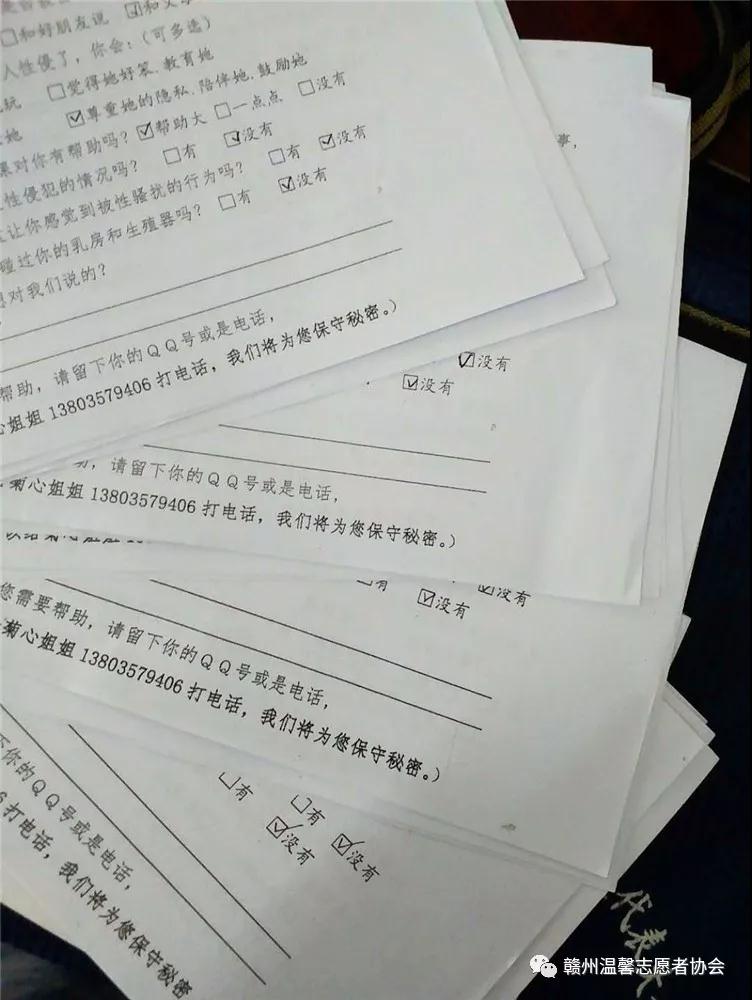 □和好朋友说 ☑和父
人性侵了，你会：（可多选）
玩 □觉得她好笨，教育她
她 ☑尊重她的隐私，陪伴她，鼓励她
果对你有帮助吗？☑帮助大 □一点点 □没有
性侵犯的情况吗？ □有 ☑没有
让你感觉到被性骚扰的行为吗？ □有 ☑没有
碰过你的乳房和生殖器吗？ □有 ☑没有
对我们说的？
帮助，请留下你的QQ号或是电话，
心姐姐13803579406打电话，我们将为您保守秘密。）
事，
☑没有
☑没有
助，请留下你的QQ号或是电话，
菊心姐姐13803579406打电话，我们将为您保守秘密。）
□有 ☑没有 ☑没有
您需要帮助，请留下你的QQ号或是电话，
菊心姐姐13803579406打电话，我们将为您保守秘密。）
□有 □有
☑没有 ☑没有
下你的QQ号或是电话，
6打电话，我们将为您保守秘密
代表
赣州温馨志愿者协会